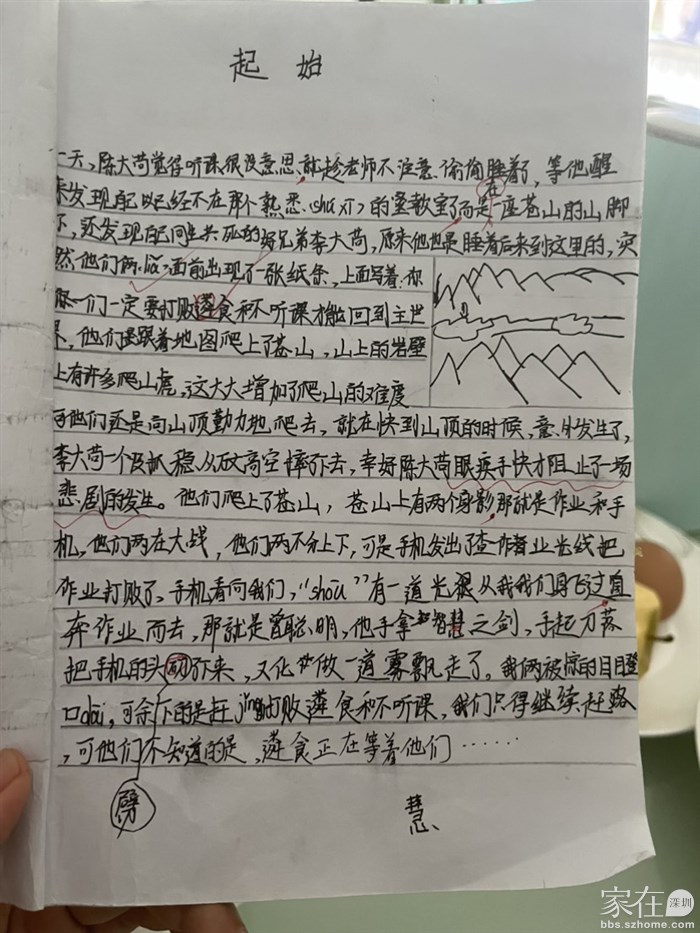 起 始
一天，陈大苟觉得听课很没意思，就趁老师不注意，偷偷睡着了，等他醒
来发现自己已经不在那个熟悉（shú xī）的教室了而是在一座苍山的山脚
下，还发现自己同生共死的好兄弟李大苟，原来他也是睡着后来到这里的，突
然他们两 面前出现了一张纸条，上面写着：你
你们一定要打败 食和不听课才能回到主世
界，他们于是跟着地图爬上了苍山，山上的岩壁
上有许多爬山虎，这大大增加了爬山的难度
可他们还是向山顶勤力地爬去，就在快到山顶的时候，意外发生了，
李大苟一个没抓稳，从 高空摔下去，幸好陈大苟眼疾手快才阻止了一场
悲剧的发生。他们爬上了苍山，苍山上有两个身影那就是作业和手
机，他们两在大战，他们两不分上下，可是手机发出了查作者业光线把
作业打败了，手机看向我们，“shōu”有一道光 从我我们身飞过直
奔作业而去，那就是曾聪明，他手拿 智慧之剑，手起刀落
把手机的头 下来，又化 做一道雾飘走了。我俩被惊的目目瞪
口dāi，可余下的是赶jǐng打败 食和不听课，我们只得继续赶路
，可他们不知道的是， 食正在等着他们……
劈 慧
家在 深圳
bbs.szhome.com